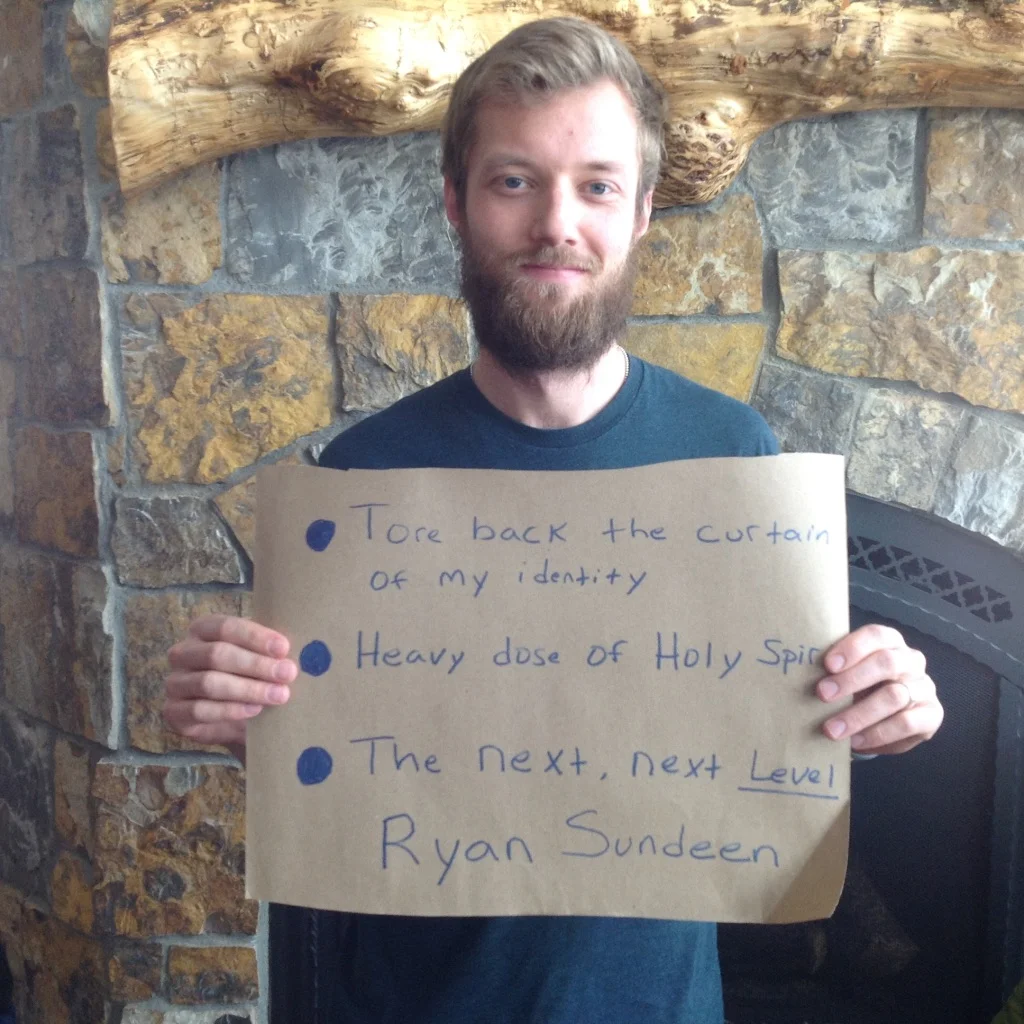 Tore back the curtain
of my identity
Heavy dose of Holy Spir
The next, next Level
Ryan Sundeen